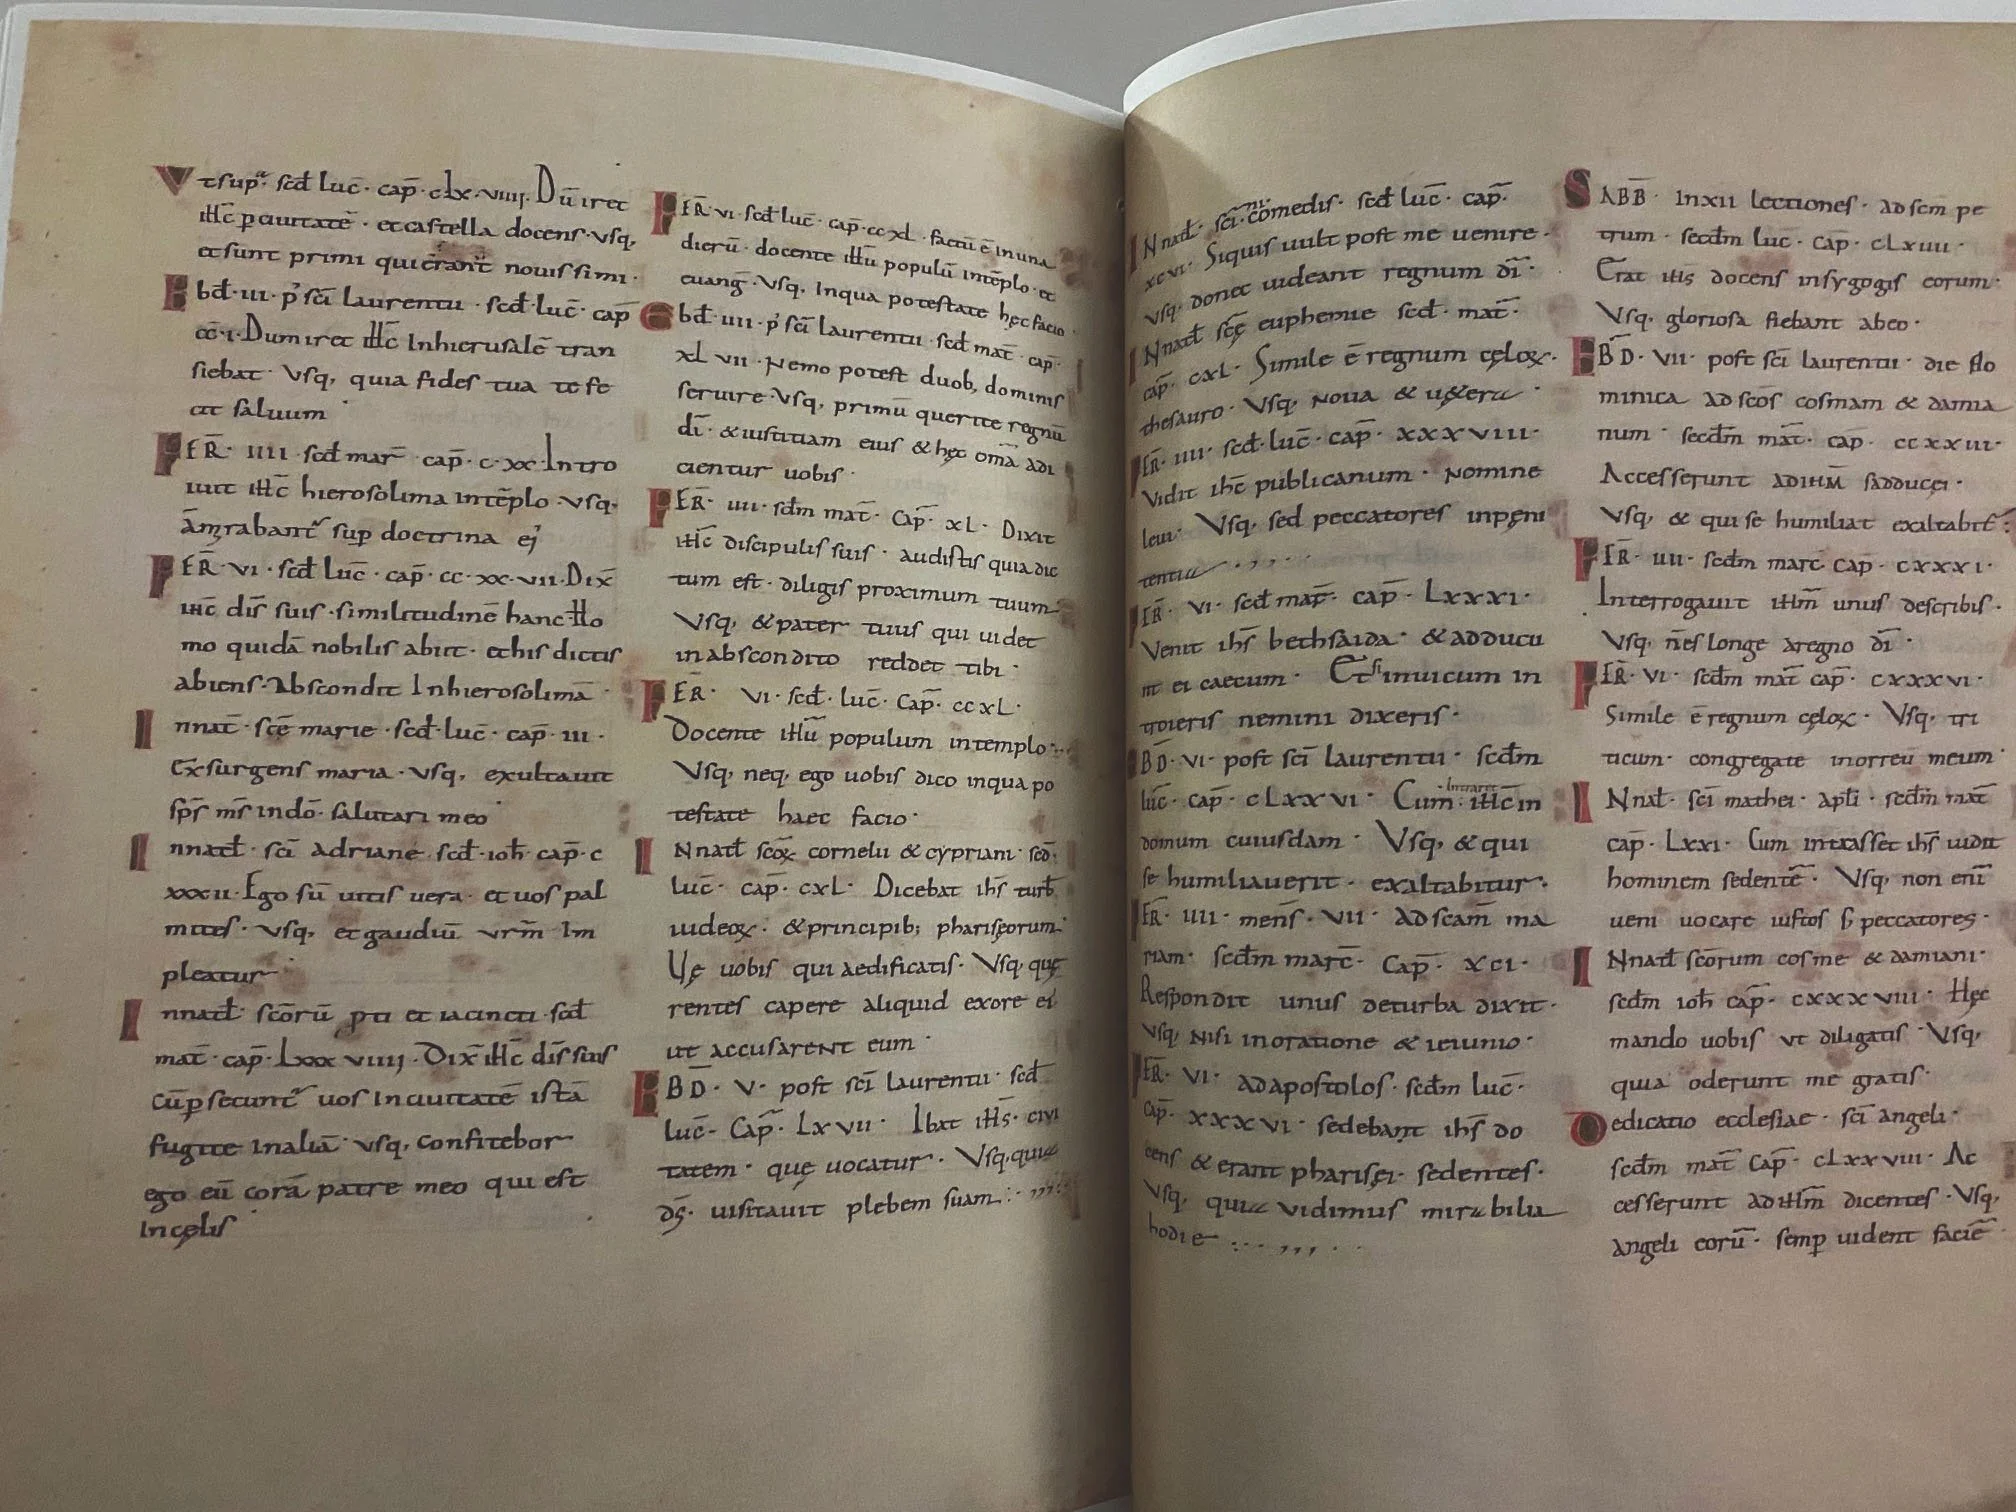 Vt sup̄ · scd̄ luc̄ · cap̄ · cLx · viiij · Dū iret
ih̄c p ciuitatē · et castella docens · vsq,
et sunt primi qui erant nouissimi ·
Ebd̄ · iii · p' sc̄i laurentii · scd̄ luc̄ · cap̄
cc̄ · i · Dum iret ih̄c Inhierusalē tran
siebat · Vsq, quia fides tua te fe
cit saluum ·
FER̄ · iiii · scd̄ mar̄ cap̄ · c · xx · Intro
iuit ih̄c hierosolima intēplo · vsq,
Am̄rabant̄ sup doctrina ej'
FER̄ · vi · scd̄ luc̄ · cap̄ · cc · xx · vii · Dix̄
ih̄c dis̄ suis · similitudinē hanc · Ho
mo quidā nobilis abiit · et his dictis
abiens · Abscondit Inhierosolimā ·
Innat̄ · sc̄e marie · scd̄ · luc̄ · cap̄ · iii ·
Exsurgens maria · vsq, exultauit
sps̄ ms̄ indō · salutari meo
Innatł · sc̄i adriane · scd̄ · ioh̄ · cap̄ · c
xxxii · Ego sū uitis uera · et uos pal
mites · vsq, et gaudiū vrm̄ Im
pleatur ·
Innatł · sc̄orū pti et iacincti · scd̄
mat̄ · cap̄ · Lxxx viiij · Dix̄ ih̄c dis̄ suis
Cū psecunt̄ uos Inciuitatē istā
fugite Inaliā · vsq, confitebor
ego eū corā patre meo qui est
Incęlis
FER̄ · vi · scd̄ luc̄ · cap̄ · cc xL · factū ē in una
dierū · docente ih̄ū populū intēplo · et
euang̃ · Vsq, Inqua potestate hęc facio ·
Ebd̄ · iiii · p' sc̄i laurentii · scd̄ mat̄ · cap̄ ·
xL vii · Nemo potest duob, dominis
seruire · Vsq, primū querite regnū
dī · & iustitiam eius & hęc om̄a adi
cientur uobis ·
FER̄ · iiii · scd̄m mat̄ · Cap̄ · xL · Dixit
ih̄c discipulis suis · audistis quia dic
tum est · diligis proximum tuum
Vsq, & pater tuus qui uidet
inabscondito reddet tibi ·
FER̄ · vi · scd̄ · luc̄ · Cap̄ · cc xL ·
Docente ih̄ū populum intemplo ·
Vsq, neq, ego uobis dico inqua po
testate haec facio ·
INnatł scoꝝ cornelii & cypriani · scd̄ ·
luc̄ · cap̄ · cxL · Dicebat ihs̄ turb̄
iudeoꝝ · & principib; phariseorum
Uę uobis qui aedificatis · Vsq, quę
rentes capere aliquid exore ei
ut accusarent eum ·
EBD̄ · V · post sc̄i laurentii · scd̄
luc̄ · Cap̄ · Lxvii · Ibat ih̄s · civi
tatem · quę uocatur · Vsq, quia
ds̄ · uisitauit plebem suam
INnatł · sc̄i · comedis · scd̄ luc̄ · cap̄ ·
ni ·
xcvi · Siquis uult post me uenire ·
Vsq, donec uideant regnum dī ·
INnatł sc̄ę euphemie scd̄ · mat̄ ·
cap̄ · cxL · Simile ē regnum cęloꝝ ·
thesauro · Vsq, noua & uetera
FER̄ · iiii · scd̄ · luc̄ · cap̄ · xxxviii ·
Vidit ih̄c publicanum · Nomine
leui · Vsq, sed peccatores inpęni
tentia
FER̄ · vi · scd̄ mar̄ · cap̄ · Lxxxi ·
Venit ihs̄ bethsaida · & adducu
nt ei caecum · Et si inuicum in
troieris nemini dixeris ·
EBD̄ · vi · post sc̄i laurentii · scd̄m
luc̄ · cap̄ · cLxxvi · Cum · ih̄c in
Intraret
domum cuiusdam · Vsq, & qui
se humiliauerit · exaltabitur ·
FER̄ · iiii · mens̄ · vii · ad scam̄ ma
riam · scd̄m marc̄ · Cap̄ · xci ·
Respondit unus deturba dixit ·
Vsq, nisi inoratione & ieiunio ·
FER̄ · vi · ad apostolos · scd̄m luc̄ ·
cap̄ · xxxvi · sedebant ihs̄ do
cens & erant pharisei · sedentes ·
Vsq, quia vidimus mirabilia
hodie
SABB̄ · Inxii lectiones · ad scm̄ pe
trum · secd̄m luc̄ · cap̄ · cLxiiii ·
Erat ih̄s docens insygogis eorum ·
Vsq, gloriosa fiebant abeo ·
EBD̄ · vii · post sc̄i laurentii · die do
minica ad scos̄ cosmam & damia
num · secd̄m mat̄ · cap̄ · ccxxiii ·
Accesserunt ad ih̄m sadducei ·
Vsq, & qui se humiliat exaltabit̄
FER̄ · iiii · scd̄m marc̄ cap̄ · cxxxi ·
Interrogauit ih̄m unus describis ·
Vsq, n̄es longe aregno dī ·
FER̄ · vi · scd̄m mat̄ cap̄ · cxxxvi ·
Simile ē regnum cęloꝝ · Vsq, tri
ticum · congregate inorreū meum ·
INnat̄ · sc̄i mathei · apłi · scd̄m mat̄
cap̄ · Lxxi · Cum intrasset ihs̄ uidit
hominem sedentē · Vsq, non eni̅
ueni uocare iustos s; peccatores ·
INnatł sc̄orum cosme & damiani ·
scd̄m ioh̄ cap̄ · cxxxviii · Hęc
mando uobis vt diligatis · Vsq,
quia oderunt me gratis ·
Dedicatio ecclesiae · sc̄i angeli ·
scd̄m mat̄ cap̄ · cLxxviii · Ac
cesserunt ad ih̄m dicentes · Vsq,
angeli eorū · semp uident faciē